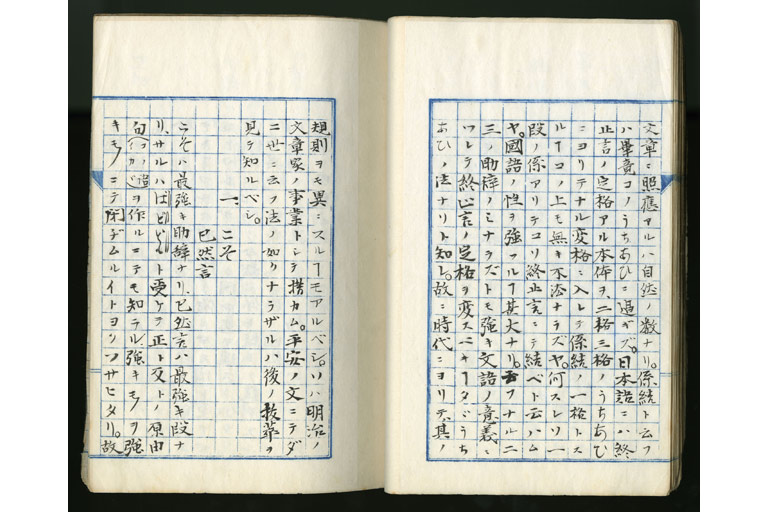 文章ニ照應アルハ自然ノ数ナリ。係結ト云フ
ハ畢竟コノうちあひニ過ギズ。日本語ニハ終
止言ノ定格アル本体ヲ、二格三格ノうちあひ
ニヨリテナル変格ニ入レテ係結ノ一格トス
ルヿコノ上モ無キ不法ナラズヤ。何スレソ一
段ノ係アリテコソ終止言ニテ結ベト云ハム
ヤ。國語ノ性ヲ強フルヿ甚大ナリ。フナル二
三ノ助辞ノミナラズトモ強キ文語ノ意義ニ
ツレテ終止言ノ定格ヲ変スベキヿタゞうち
あひノ法ナリト知レ。故ニ時代ニヨリテ、其ノ
規則ヲモ異ニスルヿモアルベシ。ソハ明治ノ
文章家ノ事業トシテ措カム。平安ノ文ニテダ
ニ世ニ云フ法ノ如クナラザルハ後ノ教ヲ
見テ知ルベシ。
一、こそ
已然言
こそハ最強キ助辞ナリ、已然言ハ最強キ段ナ
リ、サルハばどもト受ケテ正ト反トノ原由
句ヲ作ルニテモ知ラル、強キモノヲ強
キモノニテ閉ヂムルイトヨシフサヒタリ。故